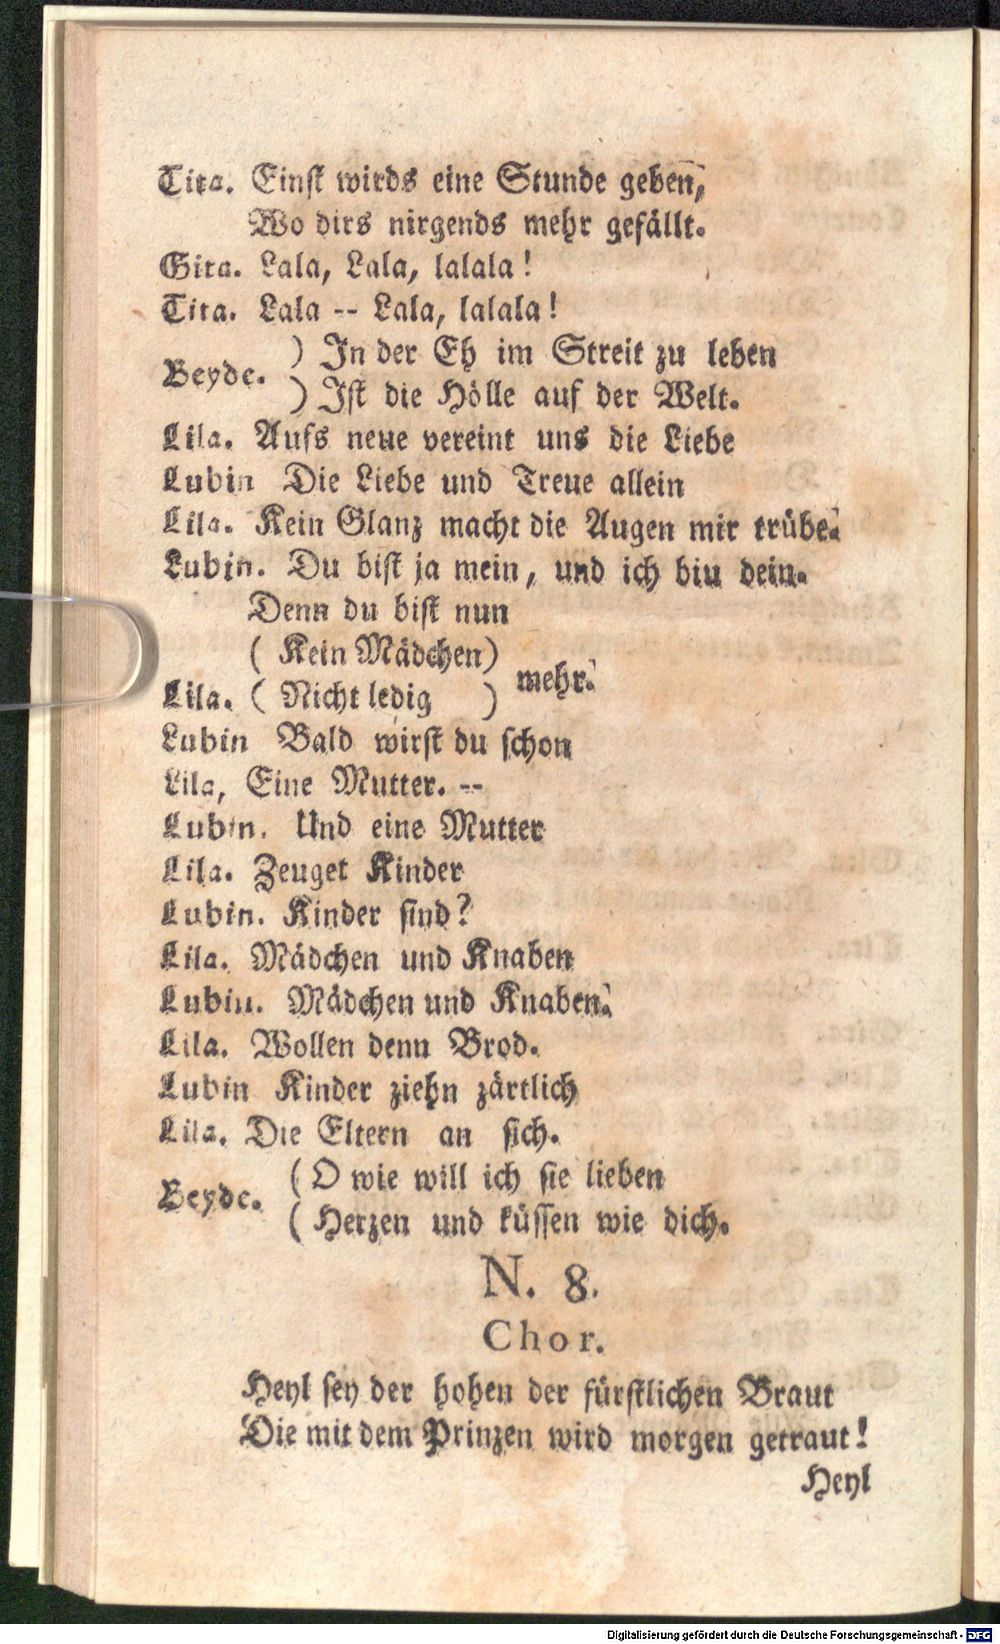 Tita. Einst wirds eine Stunde geben,
Wo dirs nirgends mehr gefällt.
Gita. Lala, Lala, lalala!
Tita. Lala -- Lala, lalala!
Beyde. ) In der Eh im Streit zu leben
) Ist die Hölle auf der Welt.
Lila. Aufs neue vereint uns die Liebe
Lubin Die Liebe und Treue allein
Lila. Kein Glanz macht die Augen mir trübe.
Lubin. Du bist ja mein, und ich biu dein.
Denn du bist nun
( Kein Mädchen)
Lila. ( Nicht ledig ) mehr.
Lubin Bald wirst du schon
Lila, Eine Mutter. --
Lubin. Und eine Mutter
Lila. Zeuget Kinder
Lubin. Kinder sind?
Lila. Mädchen und Knaben
Lubin. Mädchen und Knaben.
Lila. Wollen denn Brod.
Lubin Kinder ziehn zärtlich
Lila. Die Eltern an sich.
Beyde. ( O wie will ich sie lieben
( Herzen und küssen wie dich.
N. 8.
Chor.
Heyl sey der hohen der fürstlichen Braut
Die mit dem Prinzen wird morgen getraut!
Heyl
Digitalisierung gefördert durch die Deutsche Forschungsgemeinschaft - DFG